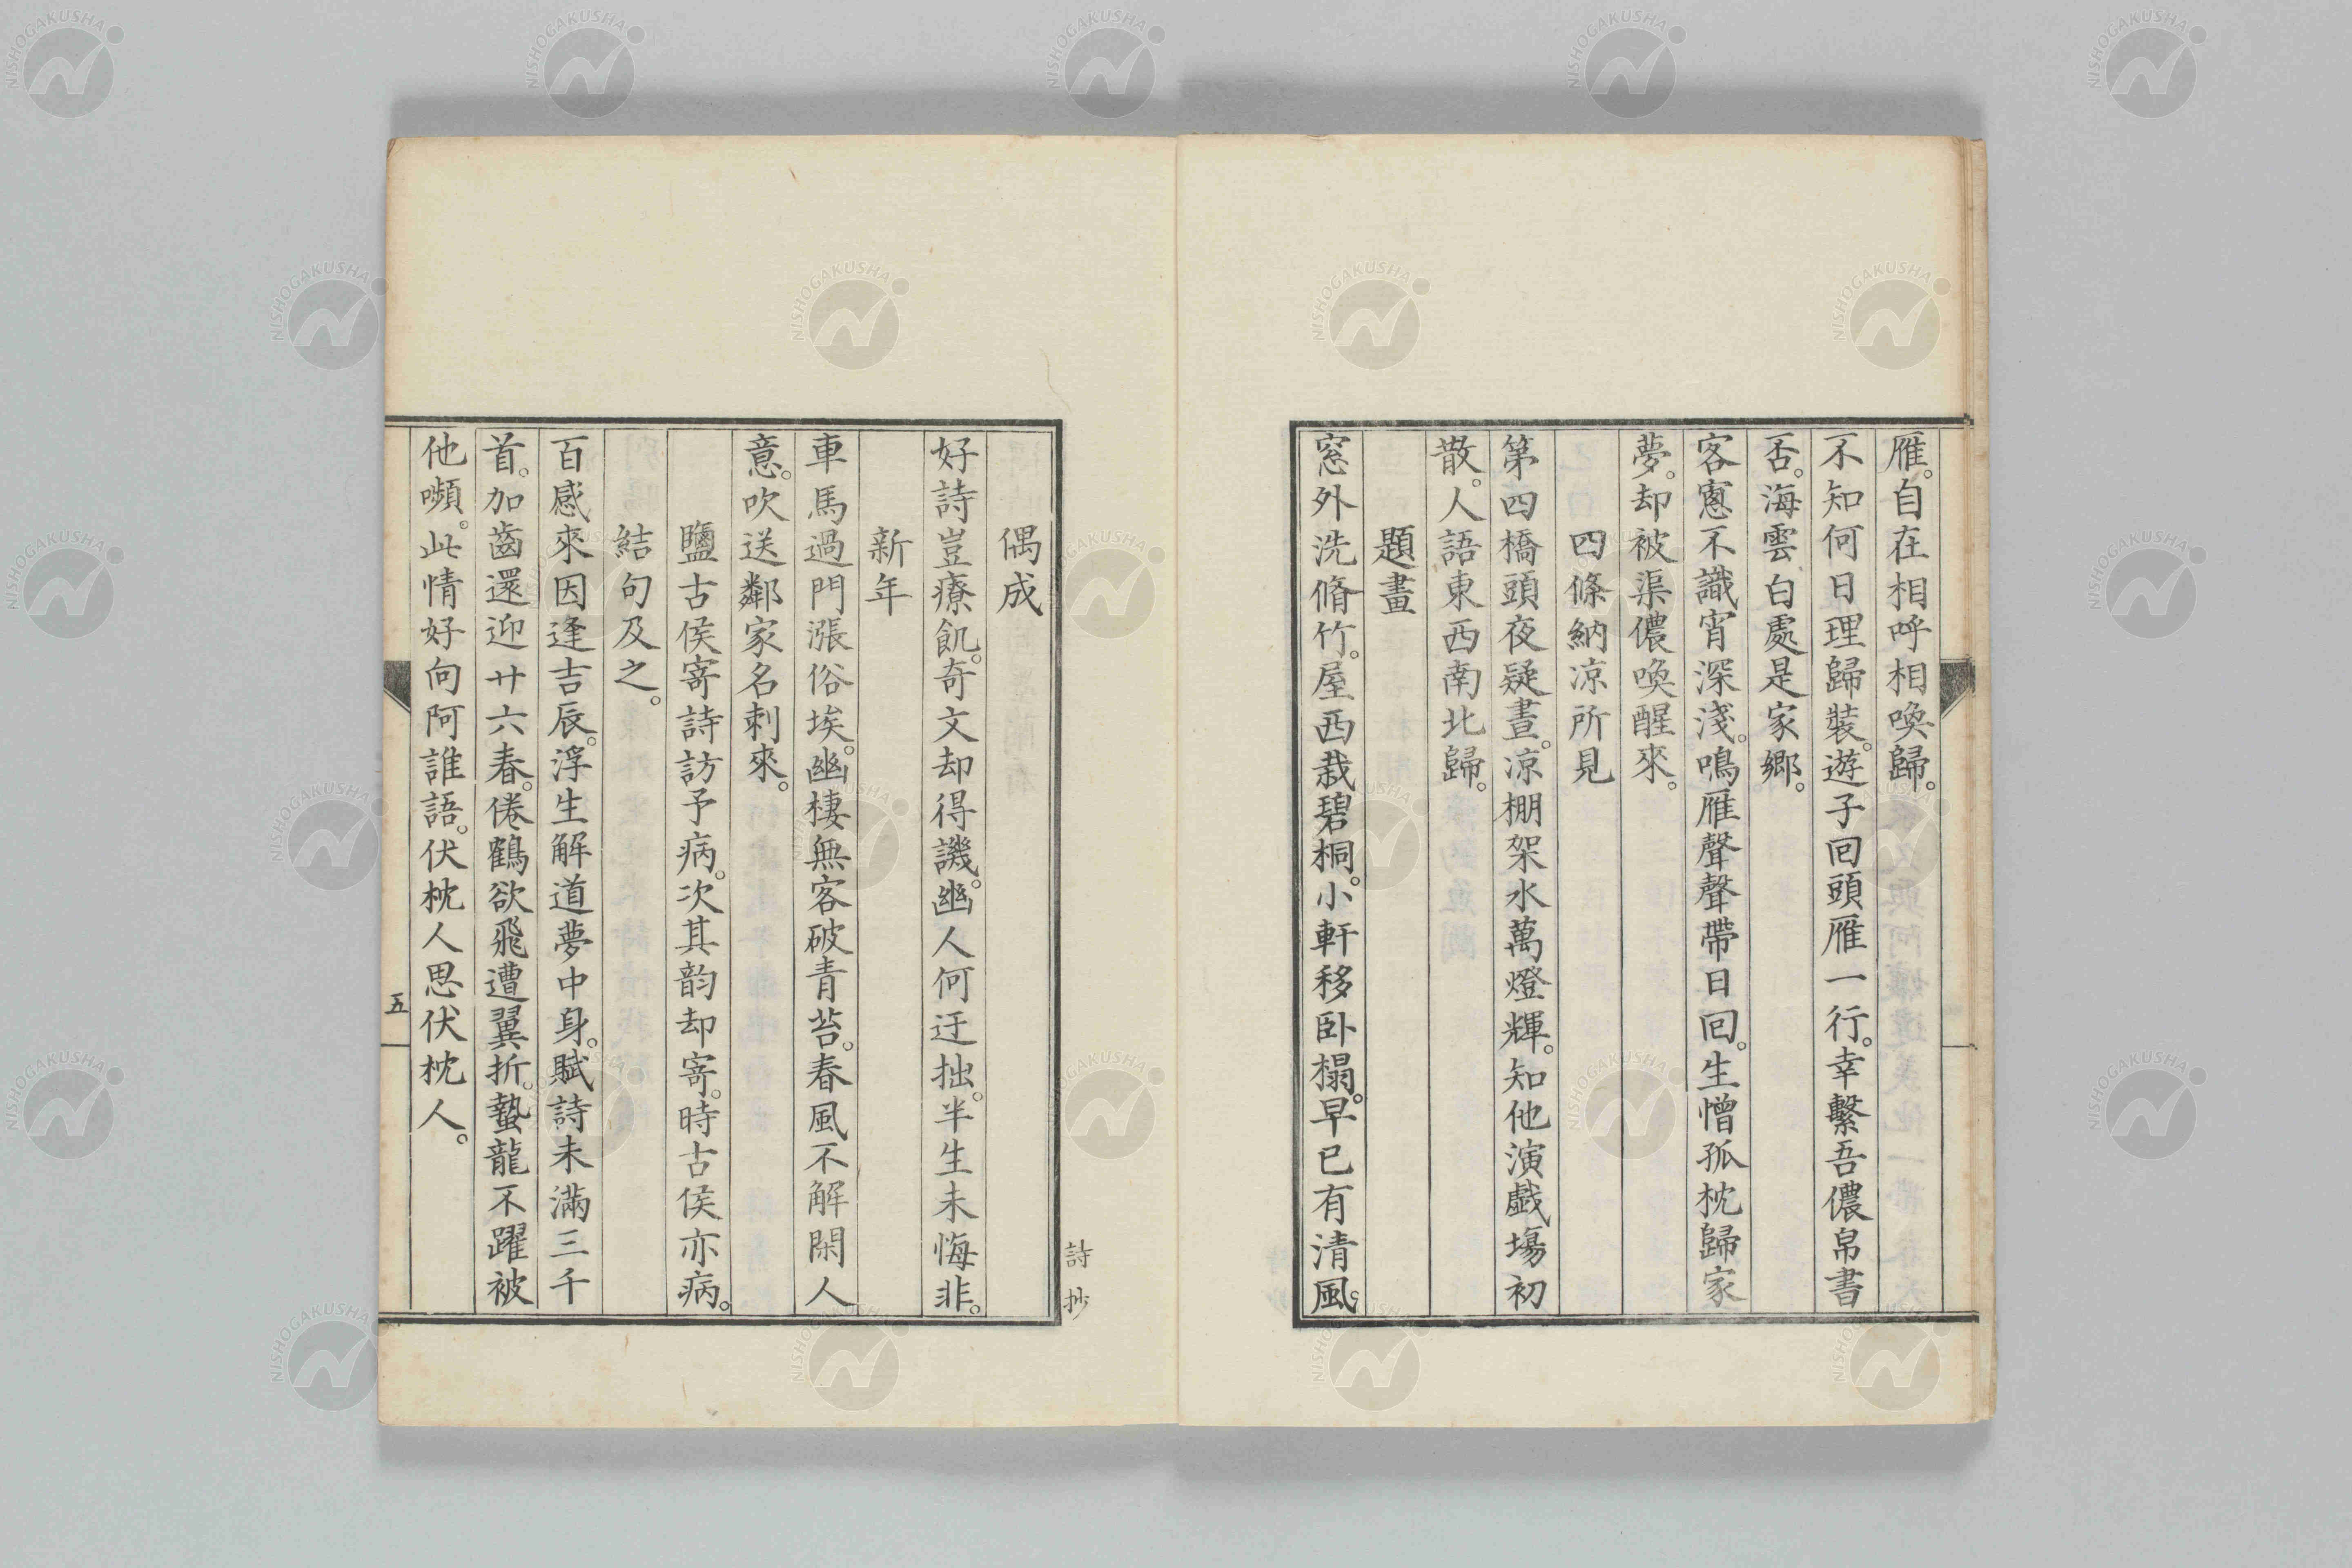 雁。自在相呼相喚歸。
不知何日理歸裝。遊子回頭雁一行。幸繫吾儂帛書
否。海雲白處是家鄉。
客窻不識宵深淺。鳴雁聲聲帶日回。生憎孤枕歸家
夢。却被渠儂喚醒來。
四條納涼所見
第四橋頭夜疑晝。涼棚架水萬燈輝。知他演戲場初
散。人語東西南北歸。
題畫
窓外洗脩竹。屋西栽碧桐。小軒移臥榻。早已有清風。
詩抄
偶成
好詩豈療飢。奇文却得譏。幽人何迂拙。半生未悔非。
新年
車馬過門漲俗埃。幽棲無客破青苔。春風不解閑人
意。吹送鄰家名刺來。
鹽古侯寄詩訪予病。次其韵却寄。時古侯亦病。
結句及之。
百感來因逢吉辰。浮生解道夢中身。賦詩未滿三千
首。加齒還迎廿六春。倦鶴欲飛遭翼折。蟄龍不躍被
他嚬。此情好向阿誰語。伏枕人思伏枕人。
五
NISHOGAKUSHA